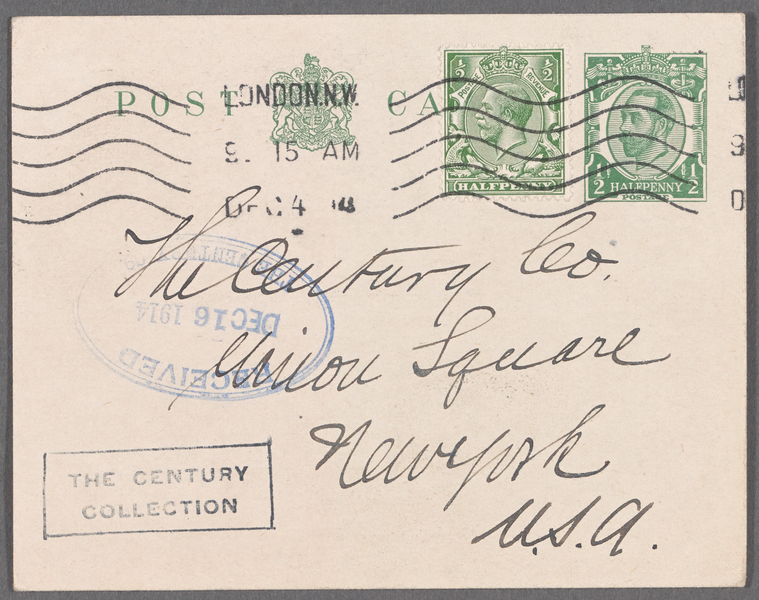 POST CA
LONDON.N.W.
9. 15 AM
DEC 4 14
½ POSTAGE REVENUE ½
HALFPENNY
½ HALFPENNY ½
POSTAGE
The Century Co.
Union Square
New York
U.S.A.
RECEIVED
DEC 16 1914
THE CENTURY CO.
THE CENTURY
COLLECTION